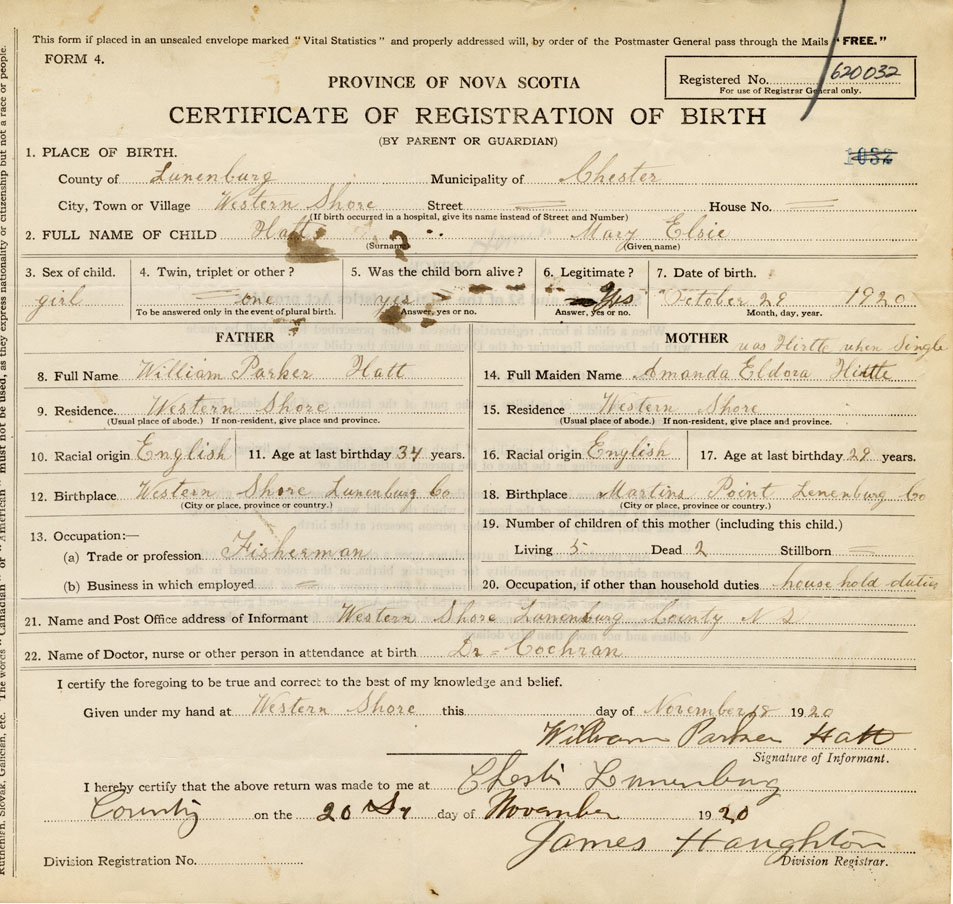 This form if placed in an unsealed envelope marked "Vital Statistics" and properly addressed will, by order of the Postmaster General pass through the Mails "FREE."
FORM 4.
Registered No. 620032
For use of Registrar General only.
PROVINCE OF NOVA SCOTIA
CERTIFICATE OF REGISTRATION OF BIRTH
(BY PARENT OR GUARDIAN)
1032
1. PLACE OF BIRTH.
County of Lunenburg Municipality of Chester
City, Town or Village Western Shore Street House No.
(If birth occurred in a hospital, give its name instead of Street and Number)
2. FULL NAME OF CHILD Hatt Mary Elsie
(Surname) (Given name)
3. Sex of child. 4. Twin, triplet or other? 5. Was the child born alive? 6. Legitimate? 7. Date of birth.
girl one yes Yes October 29 1920
To be answered only in the event of plural birth. Answer, yes or no. Answer, yes or no. Month, day, year.
FATHER MOTHER was Hirtle when Single
8. Full Name William Parker Hatt 14. Full Maiden Name Amanda Eldora Hirtle
9. Residence. Western Shore 15. Residence Western Shore
(Usual place of abode.) If non-resident, give place and province. (Usual place of abode.) If non-resident, give place and province.
10. Racial origin English 11. Age at last birthday 34 years. 16. Racial origin English 17. Age at last birthday 29 years.
12. Birthplace Western Shore Lunenburg Co 18. Birthplace Martins Point Lenenburg Co
(City or place, province or country.) (City or place, province or country.)
13. Occupation:— 19. Number of children of this mother (including this child.)
(a) Trade or profession Fisherman Living 5 Dead 2 Stillborn
(b) Business in which employed 20. Occupation, if other than household duties house hold duties
21. Name and Post Office address of Informant Western Shore Lunenburg County N S
22. Name of Doctor, nurse or other person in attendance at birth Dr - Cochran
I certify the foregoing to be true and correct to the best of my knowledge and belief.
Given under my hand at Western Shore this day of November 18 1920
William Parker Hatt
Signature of Informant.
I hereby certify that the above return was made to me at Chester Lunenburg
County on the 20 day of November 1920
James Haughton
Division Registration No. Division Registrar.
Ruthenian, Slovak, Galician, etc. The words "Canadian" or "American" must not be used, as they express nationality or citizenship but not a race or people.